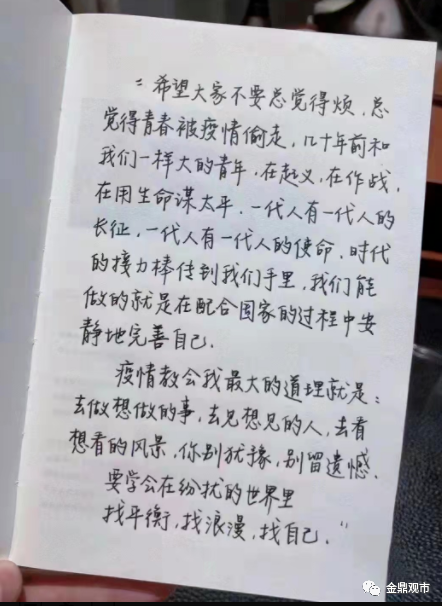 “希望大家不要总觉得烦，总
觉得青春被疫情偷走，几十年前和
我们一样大的青年，在起义，在作战，
在用生命谋太平．一代人有一代人的
长征，一代人有一代人的使命．时代
的接力棒传到我们手里，我们能
做的就是在配合国家的过程中安
静地完善自己．
疫情教会我最大的道理就是：
去做想做的事，去见想见的人，去看
想看的风景，你别犹豫，别留遗憾．
要学会在纷扰的世界里
找平衡，找浪漫，找自己．”
金鼎观市